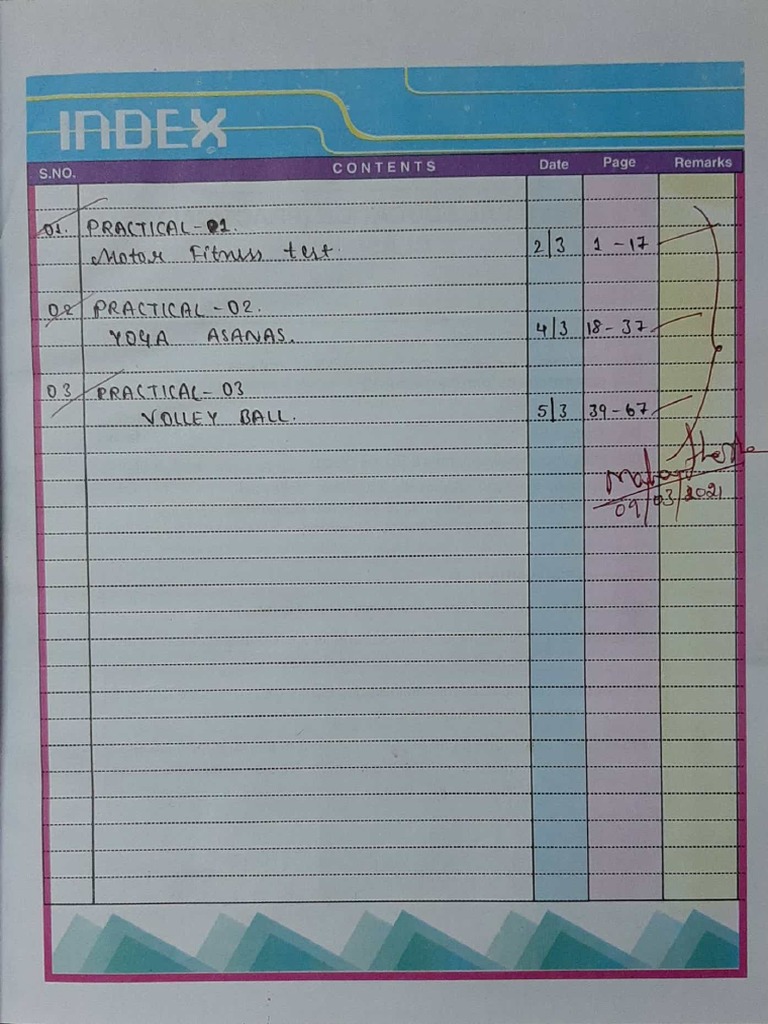 INDEX
S.NO. CONTENTS Date Page Remarks
01. PRACTICAL-01.
Motor Fitness test. 2/3 1-17
02 PRACTICAL-02.
YOGA ASANAS. 4/3 18-37
03 PRACTICAL-03
VOLLEY BALL. 5/3 39-67
09/03/2021